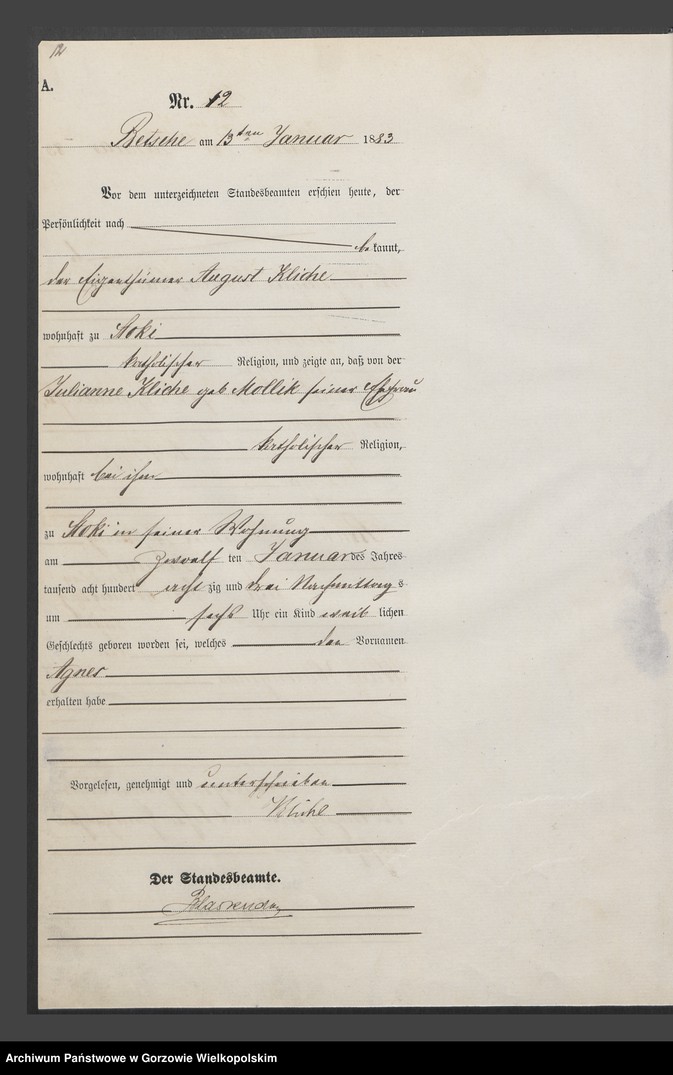 12
A.
Nr. 12
Betsche am 13ten Januar 1883
Vor dem unterzeichneten Standesbeamten erschien heute, der
Persönlichkeit nach
bekannt,
der Eigenthümer August Kliche
wohnhaft zu Stoki
katholischer Religion, und zeigte an, daß von der
Julianne Kliche geb Mollik seiner Ehefrau
katholischer Religion,
wohnhaft bei ihm
zu Stoki in seiner Wohnung
am zwoelf ten Januar des Jahres
tausend acht hundert acht zig und drei Nachmittag s
um sechs Uhr ein Kind weib lichen
Geschlechts geboren worden sei, welches den Vornamen
Agnes
erhalten habe
Vorgelesen, genehmigt und unterschrieben
Kliche
Der Standesbeamte.
Archiwum Państwowe w Gorzowie Wielkopolskim